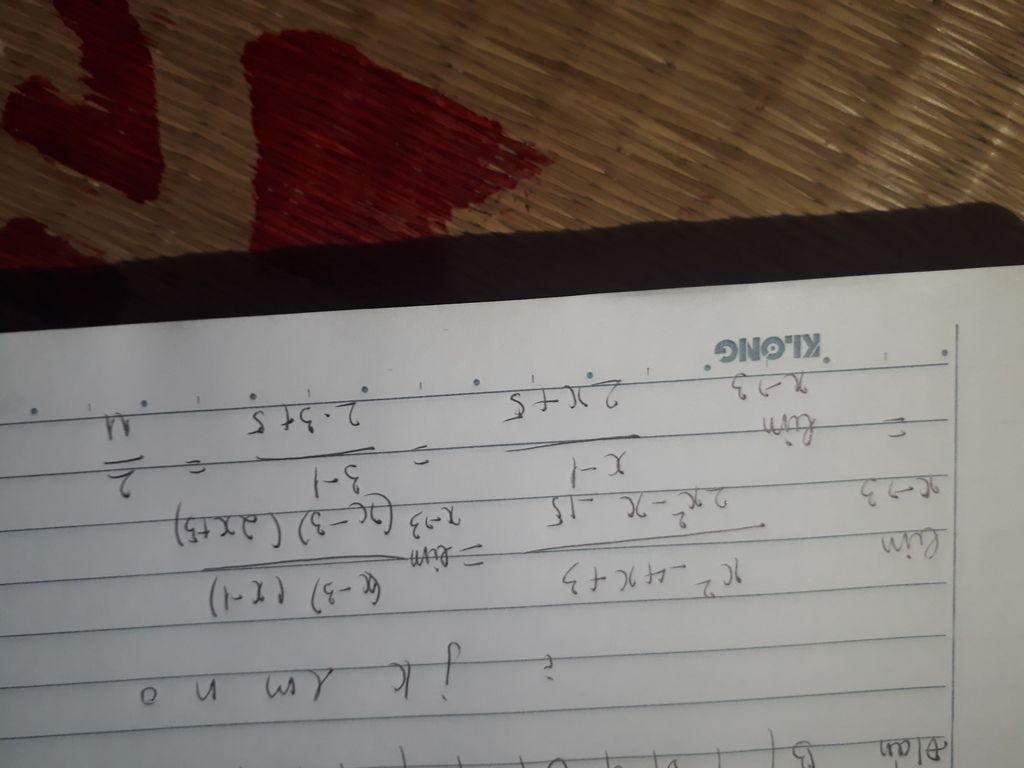 i j k l m n o
lim x→3 (x² - 4x + 3)/(2x² - x - 15) = lim x→3 (x-3)(x-1)/(x-3)(2x+5)
= lim x→3 (x-1)/(2x+5) = (3-1)/(2·3+5) = 2/11
KLONG